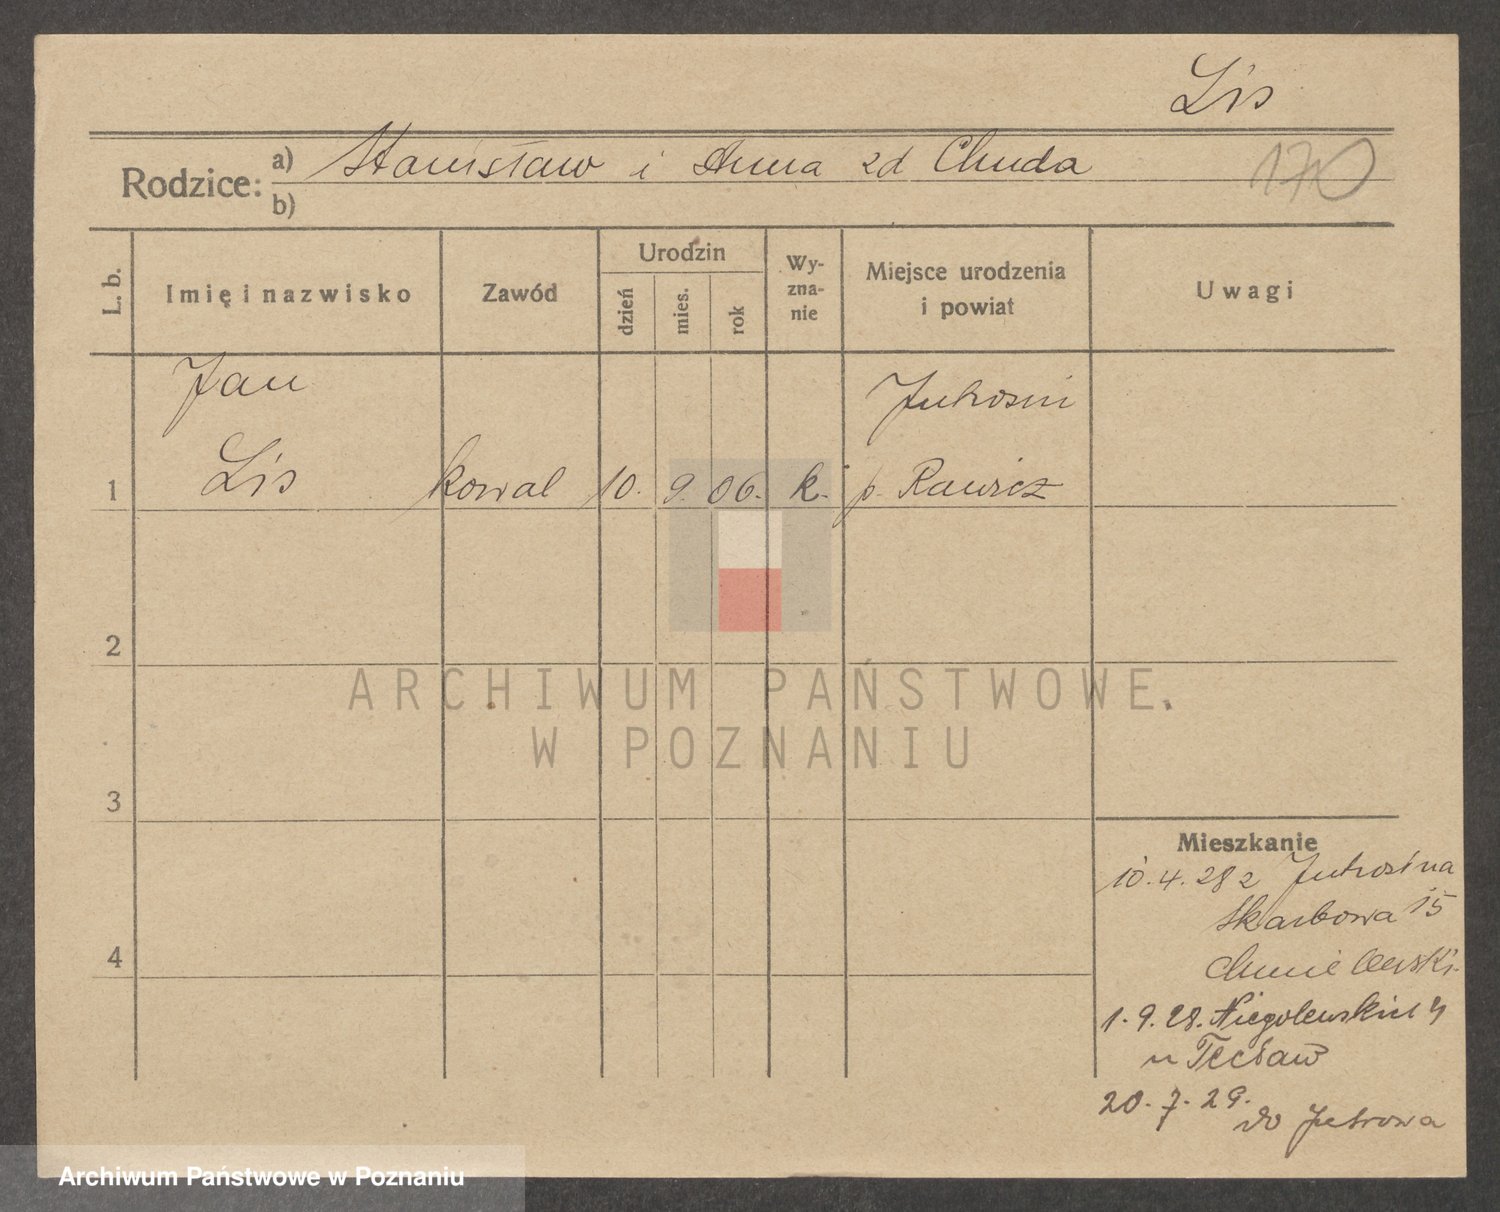 Lis
Rodzice: a) Stanisław i Anna zd Chuda
170
b)
L. b.
Imię i nazwisko
Zawód
Urodzin
dzień
mies.
rok
Wy-
zna-
nie
Miejsce urodzenia
i powiat
Uwagi
Jan
Jutrosin
1 Lis kowal 10. 9. 06. k. p. Rawicz
2
3
4
Mieszkanie
10.4.28 z Jutrosina
Skarbowa 15
Chmielewski
1.9.28. Niegolewskich
u
20.7.29.
do
ARCHIWUM PAŃSTWOWE
W POZNANIU
Archiwum Państwowe w Poznaniu